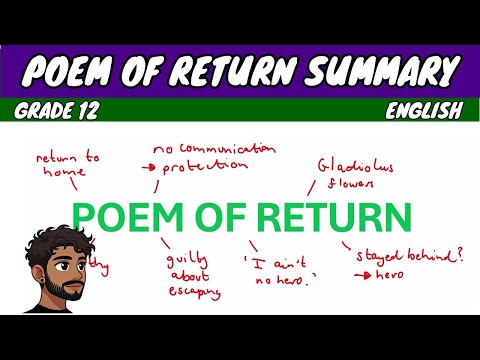 POEM OF RETURN SUMMARY
GRADE 12
ENGLISH
return to
home
no communication
→ protection
Gladiolus
flowers
POEM OF RETURN
guilty
about
escaping
'I ain't
no hero.'
stayed behind?
→ hero